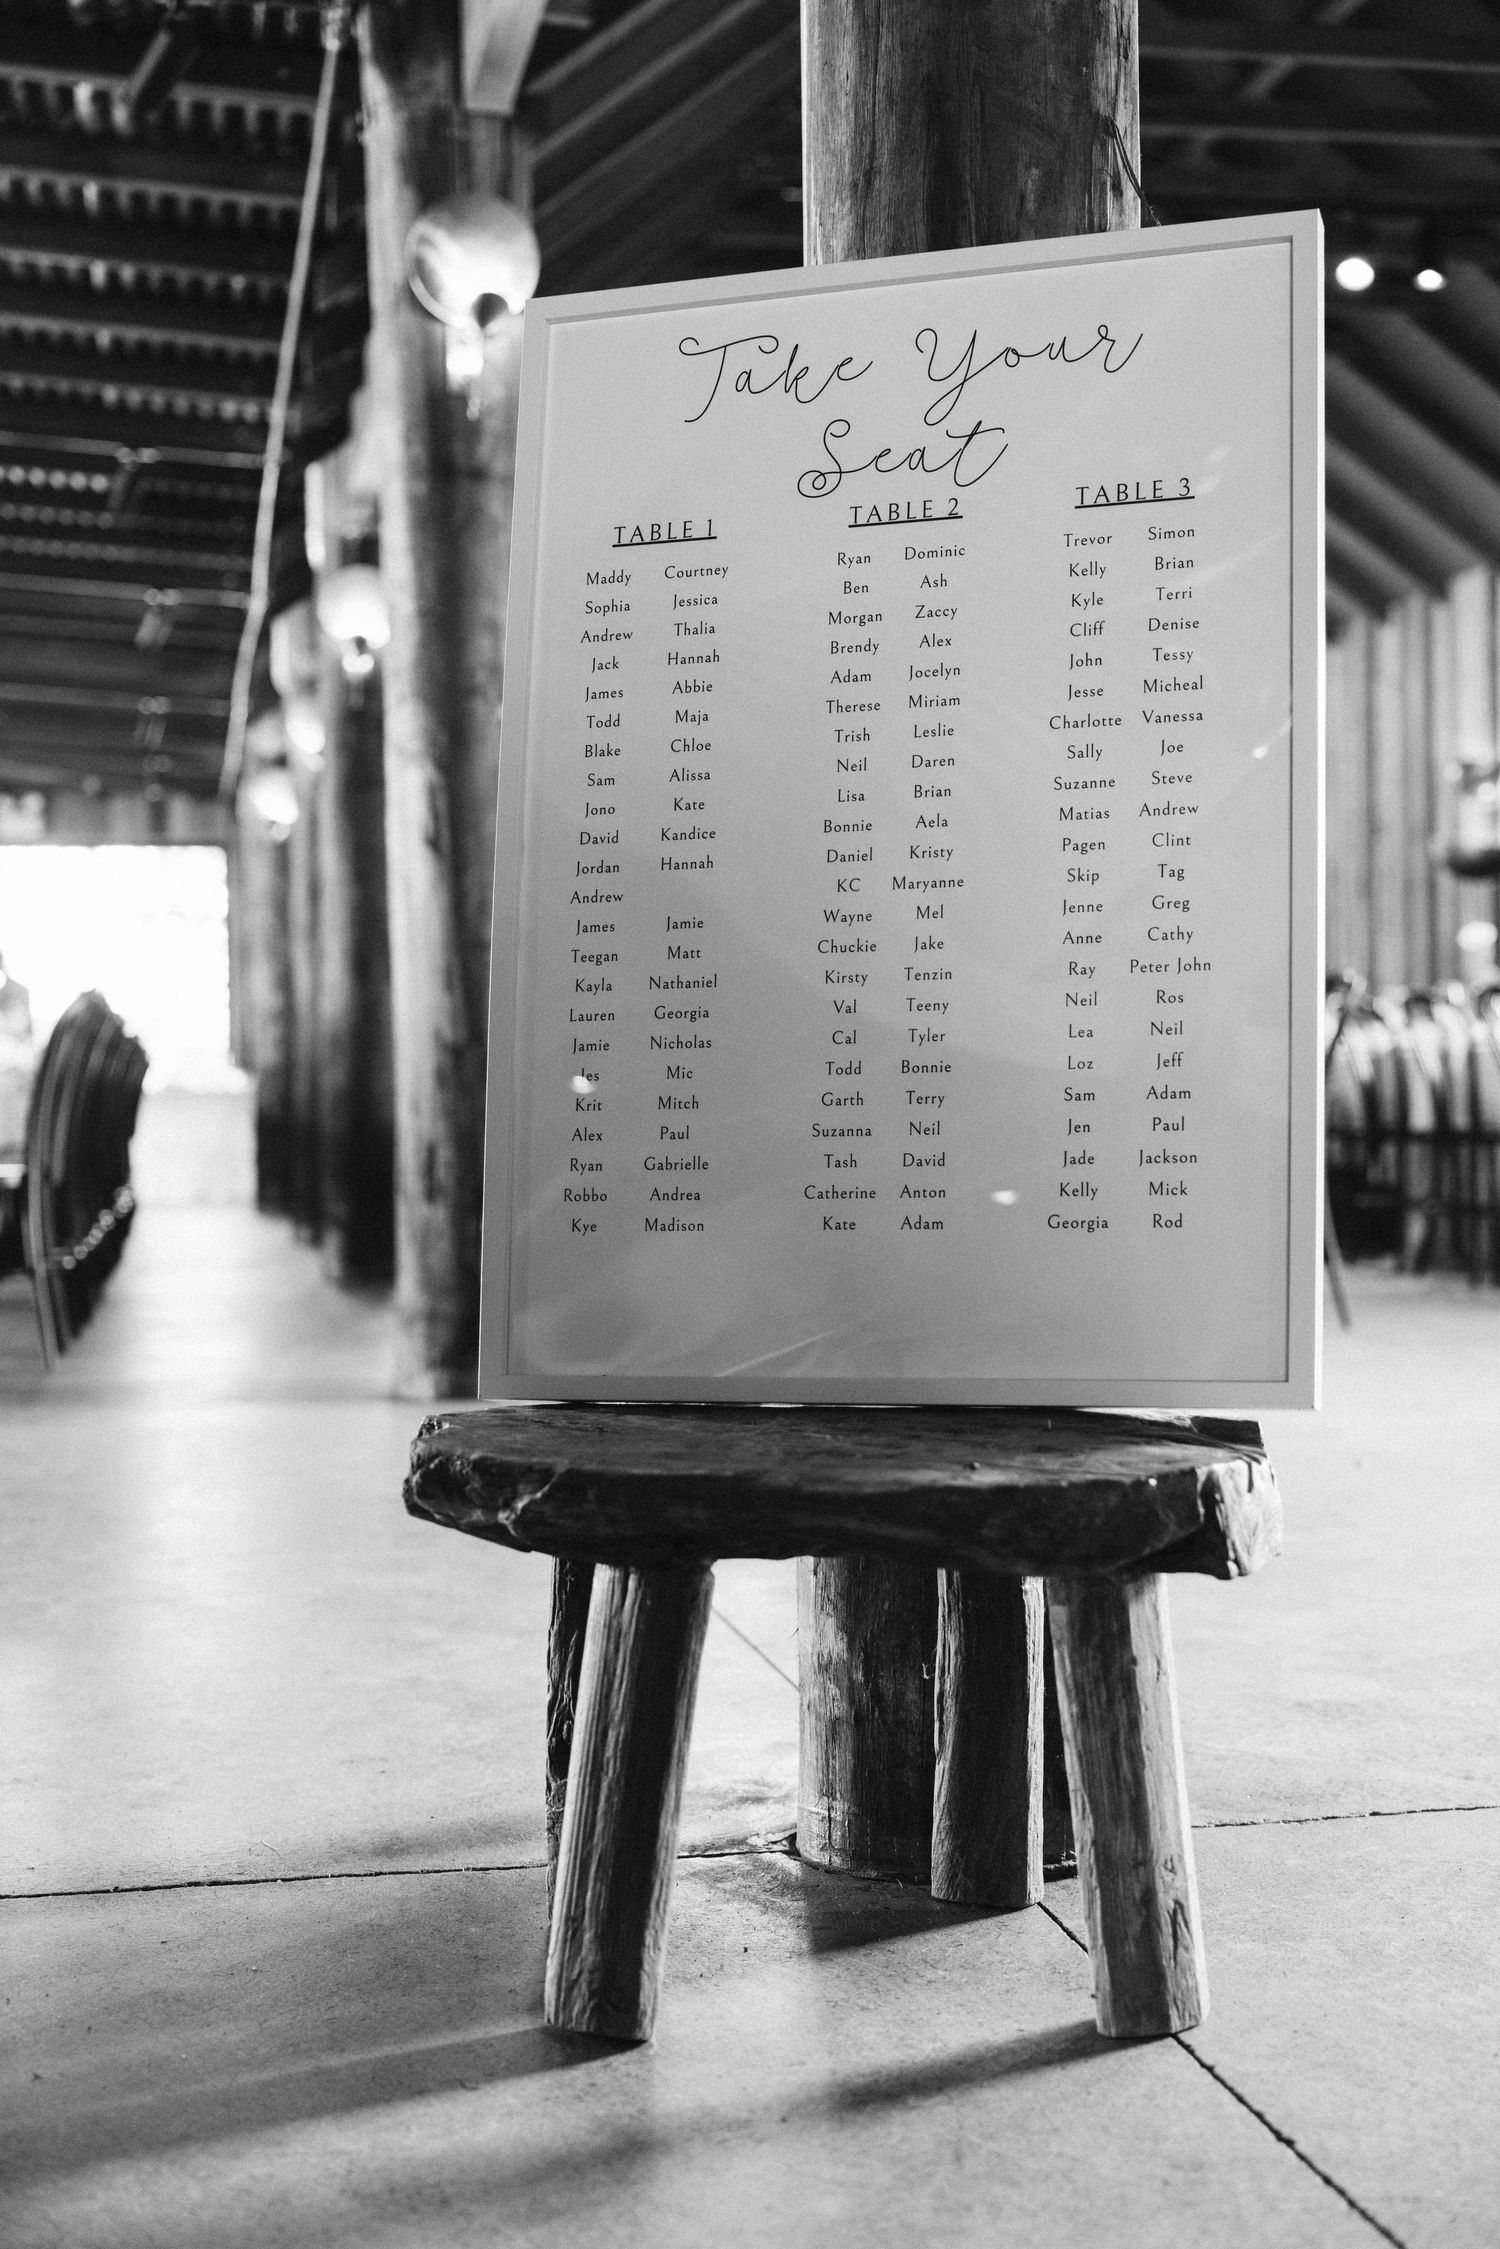 Take Your
Seat
TABLE 1
Maddy Courtney
Sophia Jessica
Andrew Thalia
Jack Hannah
James Abbie
Todd Maja
Blake Chloe
Sam Alissa
Jono Kate
David Kandice
Jordan Hannah
Andrew
James Jamie
Teegan Matt
Kayla Nathaniel
Lauren Georgia
Jamie Nicholas
Mic
Krit Mitch
Alex Paul
Ryan Gabrielle
Robbo Andrea
Kye Madison
TABLE 2
Ryan Dominic
Ben Ash
Morgan Zaccy
Brendy Alex
Adam Jocelyn
Therese Miriam
Trish Leslie
Neil Daren
Lisa Brian
Bonnie Aela
Daniel Kristy
KC Maryanne
Wayne Mel
Chuckie Jake
Kirsty Tenzin
Val Teeny
Cal Tyler
Todd Bonnie
Garth Terry
Suzanna Neil
Tash David
Catherine Anton
Kate Adam
TABLE 3
Trevor Simon
Kelly Brian
Kyle Terri
Cliff Denise
John Tessy
Jesse Micheal
Charlotte Vanessa
Sally Joe
Suzanne Steve
Matias Andrew
Pagen Clint
Skip Tag
Jenne Greg
Anne Cathy
Ray Peter John
Neil Ros
Lea Neil
Loz Jeff
Sam Adam
Jen Paul
Jade Jackson
Kelly Mick
Georgia Rod